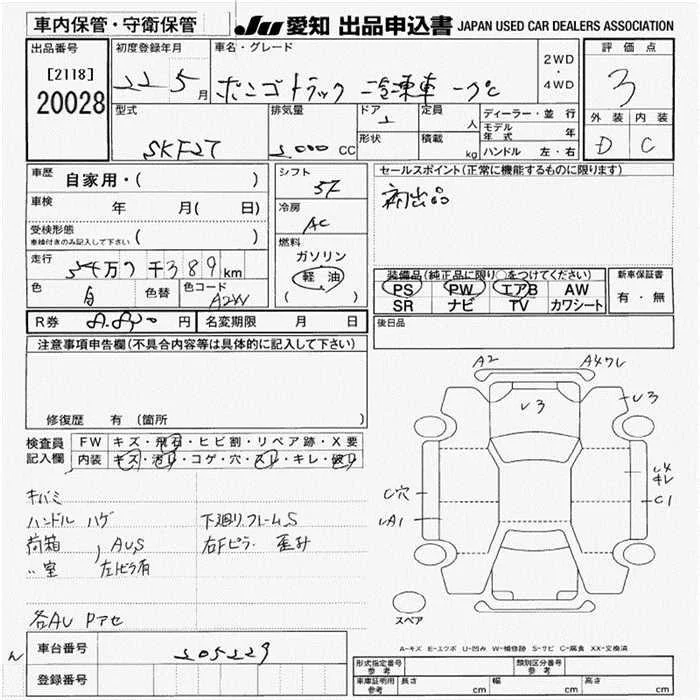 車内保管・守衛保管
JU 愛知 出品申込書 JAPAN USED CAR DEALERS ASSOCIATION
出品番号
[2118]
20028
初度登録年月
22 5月
車名・グレード
ボンゴトラック 冷凍車 -7℃
2WD
・
4WD
評価点
3
外装 内装
D C
型式
SKF27
排気量
2000 CC
ドア
2
定員
人
形状
積載
kg
ディーラー・並行
モデル年式 年
ハンドル 左・右
車歴 自家用・( )
車検 年 月(日)
受検形態
車検付きのみ記入して下さい ( )
走行 34万7千389km
色 白 色替
色コード A2W
シフト
5F
冷房
AC
燃料
ガソリン
軽油
( )
セールスポイント(正常に機能するものに限ります)
初出品
装備品(純正品に限り○をつけてください)
PS PW エアB AW
SR ナビ TV カワシート
新車保証書
有・無
R券 円 名変期限 月 日
後日品
注意事項申告欄(不具合内容等は具体的に記入して下さい)
修復歴 有 (箇所 )
検査員記入欄
FW キズ・飛石・ヒビ割・リペア跡・X要
内装 キズ・汚レ・コゲ・穴・スレ・キレ・破レ
キバミ
ハンドル ハゲ 下廻り.フレームS
荷箱 AUS 右Fピラ. 歪み
〃室
各AU Pアセ
A2 A4ワレ
U3
レ3
レ4
キレ
C1
C穴
レA1
スペア
A-キズ E-エクボ U-凹み W-補修跡 S-サビ C-腐食 XX-交換済
車台番号 205229
登録番号
形式指定番号
参考
類別区分番号
参考
車庫証明用
参考
長さ cm 幅 cm 高さ cm